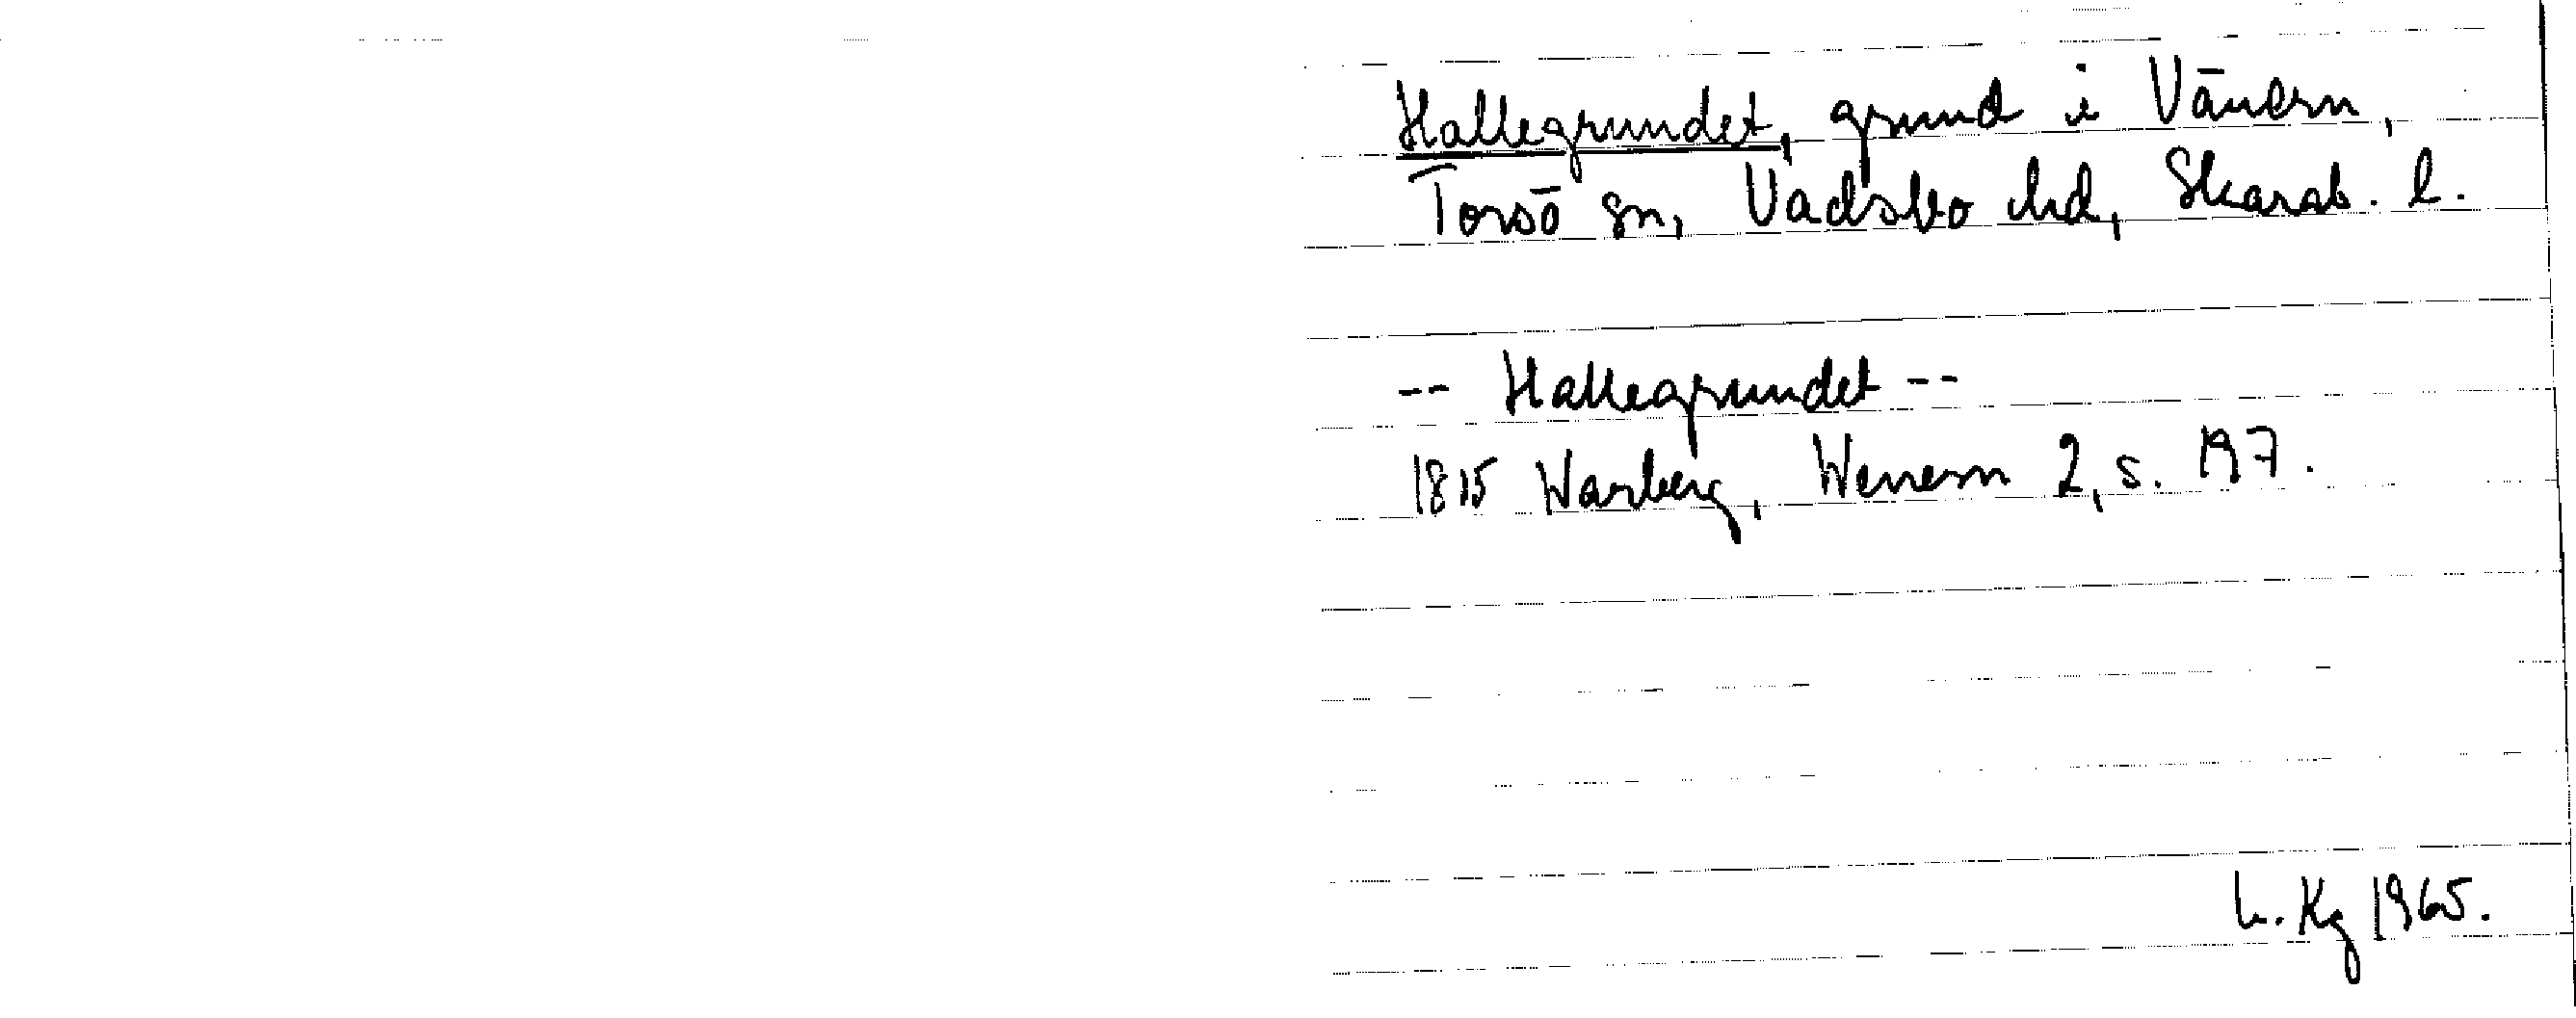 Hallegrundet, grund i Vänern,
Torsö sn, Vadsbo hd, Skarab. l.
-- Hallegrundet --
1815 Warberg, Wenern 2, s. 197.
L. Kg 1965.